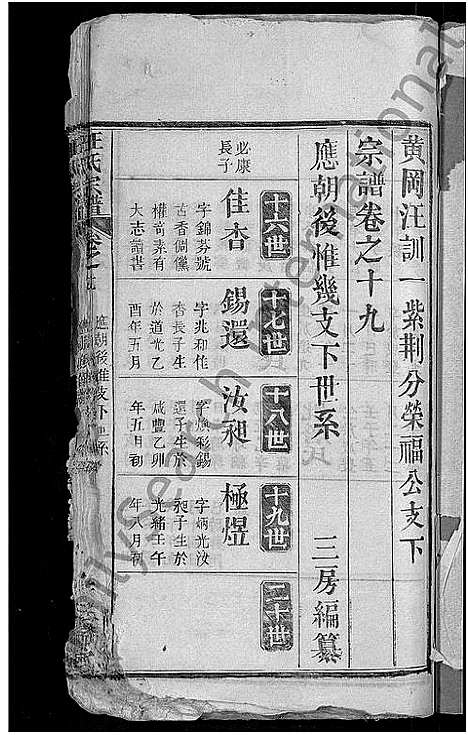 黄岡汪訓一紫荆分榮福公支下
宗譜卷之十九
應朝後惟幾支下世系
三房編纂
十六世
必康
長子
佳杏
字錦芬號
古香倜儻
權奇素有
大志讀書
十七世
錫還
字兆和佳
杏長子生
於道光乙
酉年五月
十八世
汝昶
字煥彩錫
還子生於
咸豐乙卯
年五月初
十九世
極煜
字炳光汝
昶子生於
光緒壬午
年八月初
二十世
汪氏宗譜
應朝後惟幾支下世系